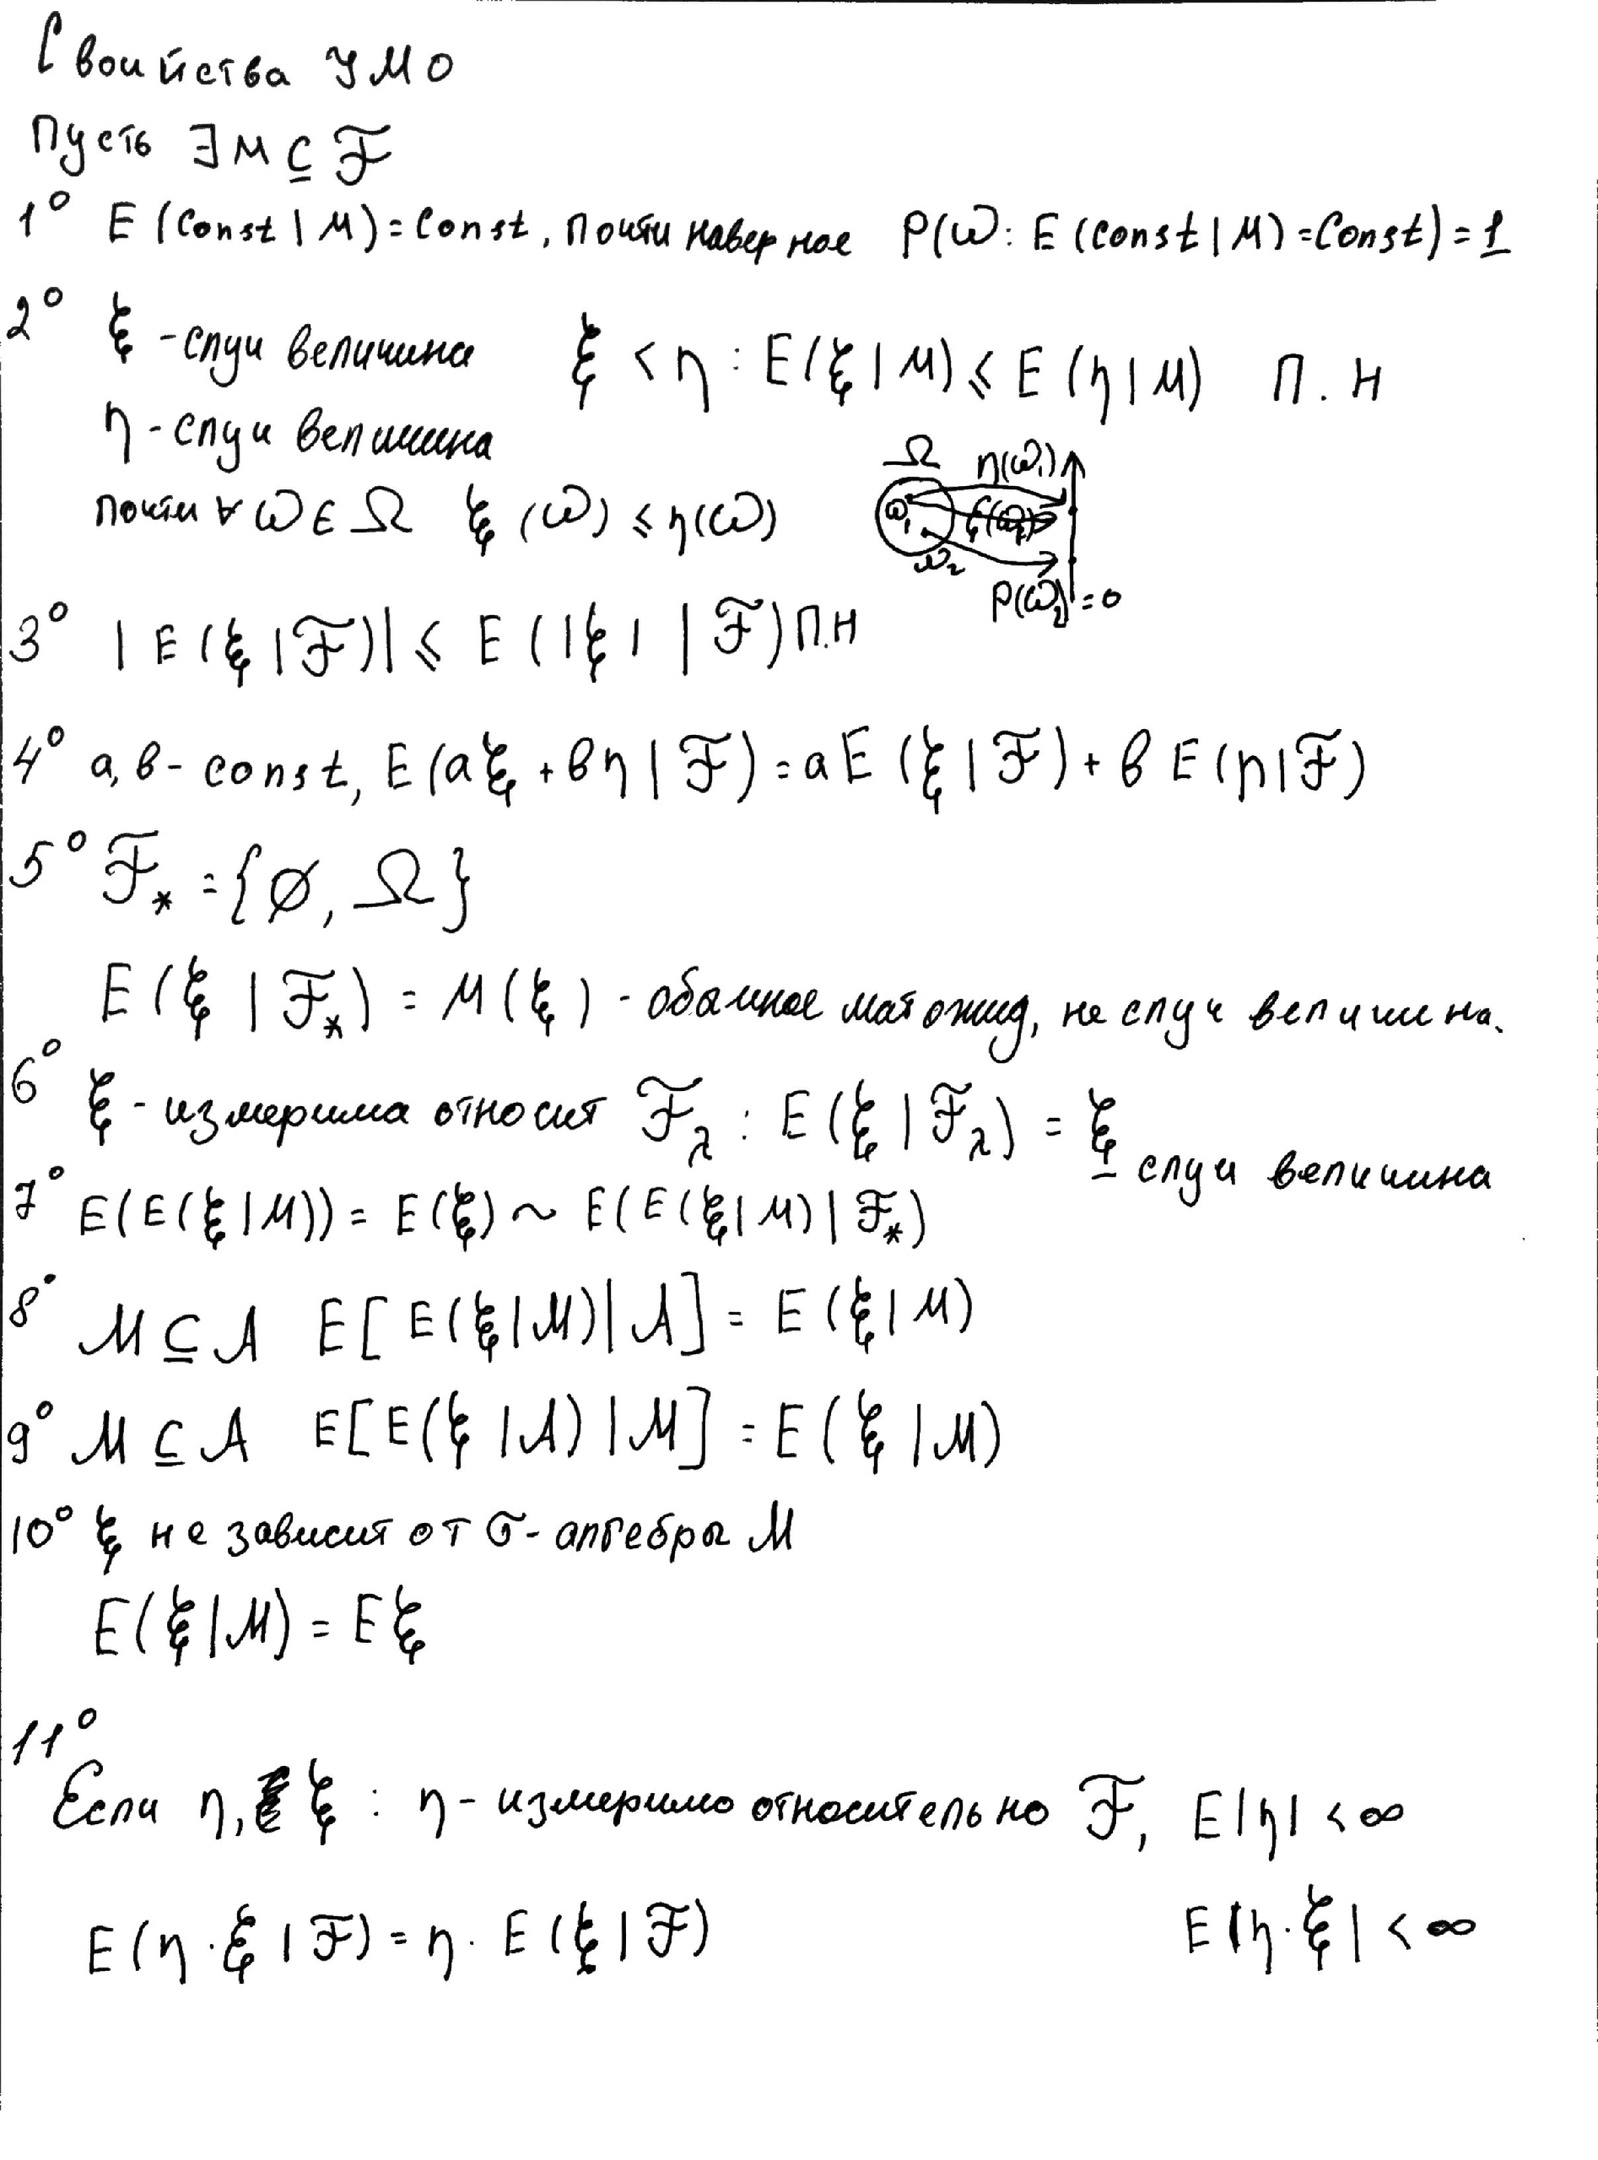 Свойства УМО
Пусть ∃ M ⊆ ℱ
1° E(Const | M) = Const, почти наверное P(ω: E(const | M) = Const) = 1
2° ξ - случ величина ξ < η : E(ξ | M) ⩽ E(η | M) П.Н
η - случ величина
почти ∀ ω ∈ Ω ξ(ω) ⩽ η(ω)
Ω η(ω₁)
ω₁
ω₂
P(ω₂) = 0
3° |E(ξ | ℱ)| ⩽ E(|ξ| | ℱ) П.Н
4° a, b - const, E(aξ + bη | ℱ) = aE(ξ | ℱ) + bE(η | ℱ)
5° ℱ* = {∅, Ω}
E(ξ | ℱ*) = M(ξ) - обычное мат ожид, не случ величина.
6° ξ - измерима относит ℱ_λ : E(ξ | ℱ_λ) = ξ - случ величина
7° E(E(ξ | M)) = E(ξ) ~ E(E(ξ | M) | ℱ*)
8° M ⊆ A E[E(ξ | M) | A] = E(ξ | M)
9° M ⊆ A E[E(ξ | A) | M] = E(ξ | M)
10° ξ не зависит от σ-алгебры M
E(ξ | M) = Eξ
11°
Если η, ξ : η - измеримо относительно ℱ, E|η| < ∞
E(η · ξ | ℱ) = η · E(ξ | ℱ) E|η · ξ| < ∞